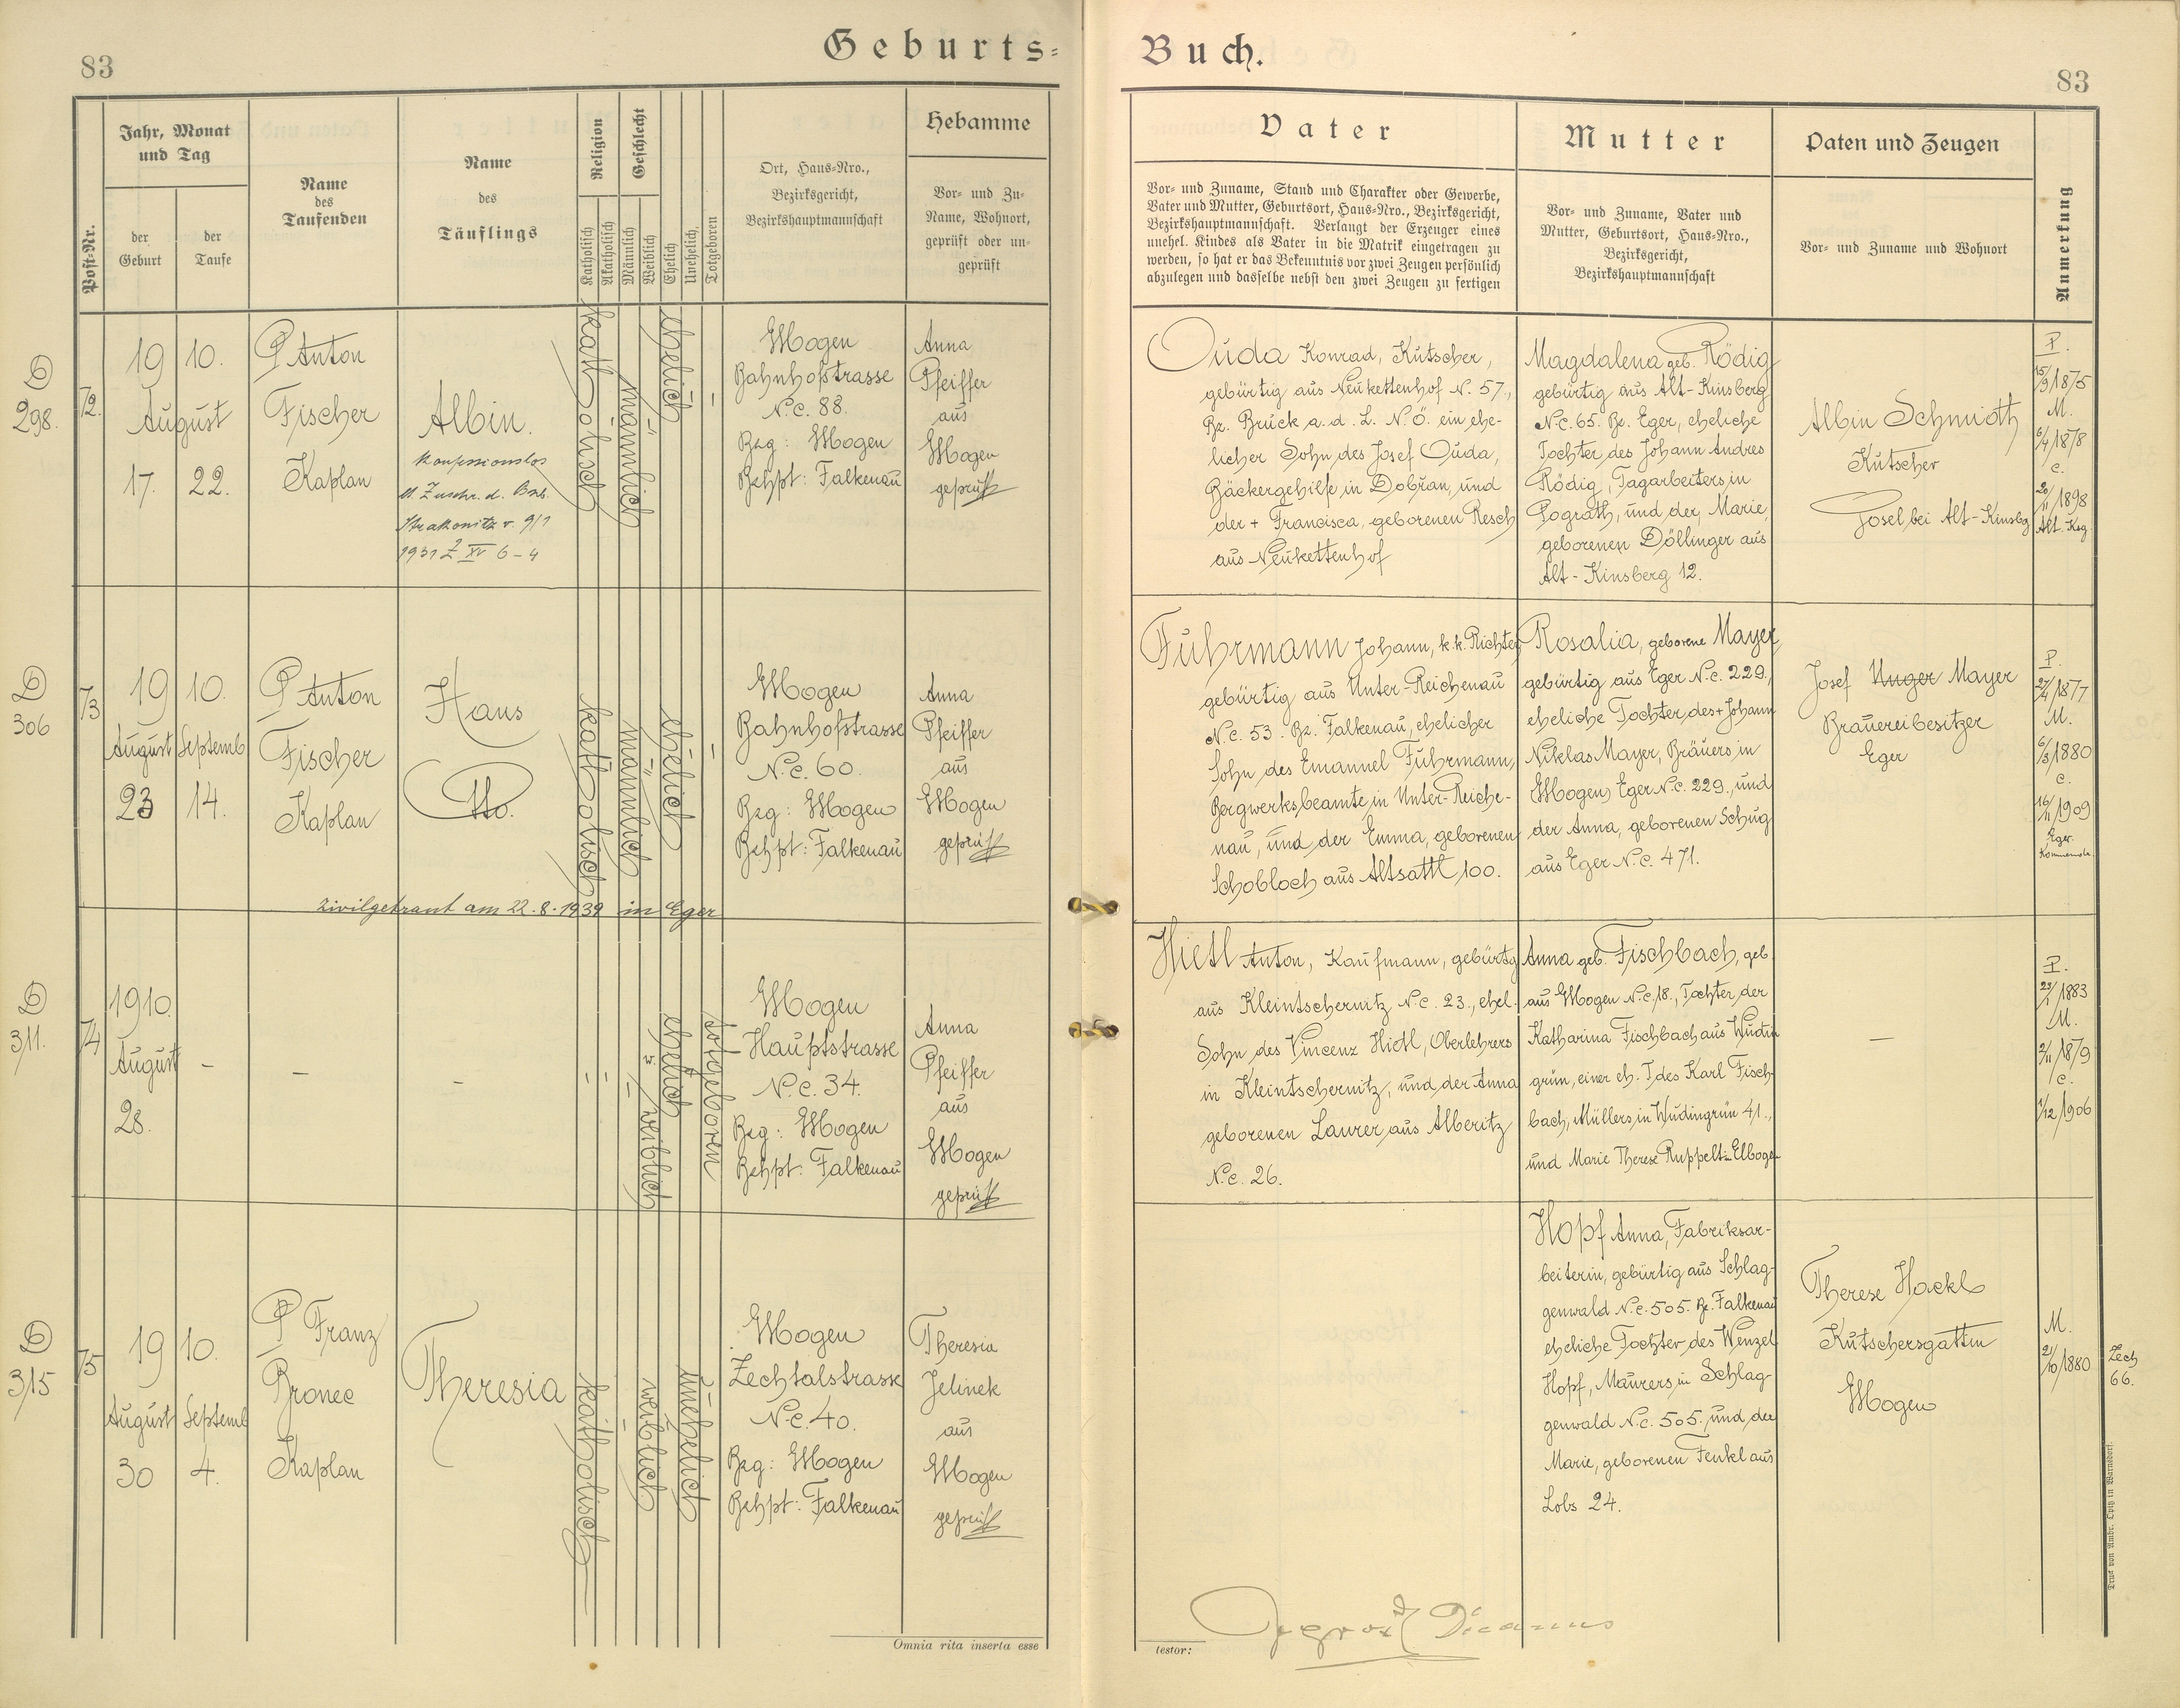 83
Geburts=
Jahr, Monat
und Tag
Post-Nr.
der
Geburt
der
Taufe
Name
des
Taufenden
Name
des
Täuflings
Religion
Katholisch
Akatholisch
Geschlecht
Männlich
Weiblich
Ehelich
Unehelich
Totgeboren
Ort, Haus-Nro.,
Bezirksgericht,
Bezirkshauptmannschaft
Hebamme
Vor- und Zu-
Name, Wohnort,
geprüft oder un-
geprüft
D
298.
72.
19 10.
August
17. 22.
P Anton
Fischer
Kaplan
Albin.
konfessionslos
1931 Z XV 6-4
katholisch
männlich
ehelich
Elbogen
Bahnhofstrasse
N.c. 88.
Bzg: Elbogen
Behpt: Falkenau
Anna
Pfeiffer
aus
Elbogen
geprüft
D
306
73
19 10.
August Septemb
23 14.
P Anton
Fischer
Kaplan
Hans
Otto.
katholisch
männlich
ehelich
Elbogen
Bahnhofstrasse
N.c. 60.
Bzg: Elbogen
Behpt: Falkenau
Anna
Pfeiffer
aus
Elbogen
geprüft
zivilgetraut am 22.8.1939 in Eger
D
311.
74
1910.
August
28.
–
–
–
w. weiblich
ehelich
totgeboren
Elbogen
Hauptstrasse
N.c. 34.
Bzg: Elbogen
Behpt: Falkenau
Anna
Pfeiffer
aus
Elbogen
geprüft
D
315
75
19 10.
August Septemb
30 4.
P Franz
Bronec
Kaplan
Theresia
katholisch
weiblich
unehelich
Elbogen
Zechtalstrasse
N.c. 40.
Bzg: Elbogen
Behpt: Falkenau
Theresia
Jelinek
aus
Elbogen
geprüft
Omnia rita inserta esse
Buch.
83
Vater
Vor- und Zuname, Stand und Charakter oder Gewerbe,
Vater und Mutter, Geburtsort, Haus-Nro., Bezirksgericht,
Bezirkshauptmannschaft. Verlangt der Erzeuger eines
unehel. Kindes als Vater in die Matrik eingetragen zu
werden, so hat er das Bekenntnis vor zwei Zeugen persönlich
abzulegen und dasselbe nebst den zwei Zeugen zu fertigen
Mutter
Vor- und Zuname, Vater und
Mutter, Geburtsort, Haus-Nro.,
Bezirksgericht,
Bezirkshauptmannschaft
Paten und Zeugen
Vor- und Zuname und Wohnort
Anmerkung
Ouda Konrad, Kutscher,
gebürtig aus Neukettenhof N. 57.,
Bz. Bruck a. d. L. N.Ö. ein ehe-
licher Sohn des Josef Ouda,
Bäckergehilfe in Dobřan, und
der + Francisca, geborenen Resch
aus Neukettenhof
Magdalena geb. Rödig
gebürtig aus Alt-Kinsberg
N.c. 65. Bz. Eger, eheliche
Tochter des Johann Andres
Rödig, Tagarbeiters in
Pograth, und der Marie,
geborenen Döllinger aus
Alt-Kinsberg 12.
Albin Schmidt
Kutscher
Josel bei Alt-Kinsbg
P.
15/9 1875
M.
6/4 1878
c.
20/11 1898
Alt-Ksg.
Fuhrmann Johann, k.k. Richter
gebürtig aus Unter-Reichenau
N.c. 53. Bz. Falkenau, ehelicher
Sohn des Emanuel Fuhrmann,
Bergwerksbeamte in Unter-Reiche-
nau, und der Emma, geborenen
Schobloch aus Altsattl 100.
Rosalia, geborene Mayer,
gebürtig aus Eger N.c. 229.,
eheliche Tochter des + Johann
Niklas Mayer, Bräuers in
Elbogen, Eger N.c. 229., und
der Anna, geborenen Schug
aus Eger N.c. 471.
Josef Unger Mayer
Brauereibesitzer
Eger
P.
27/4 1877
M.
6/8 1880
c.
16/11 1909
Eger.
Hietl Anton, Kaufmann, gebürtg
aus Kleintschernitz N.c. 23., ehel.
Sohn des Vincenz Hietl, Oberlehrers
in Kleintschernitz, und der Anna
geborenen Laurer aus Alberitz
N.c. 26.
Anna geb. Fischbach, geb.
aus Elbogen N.c. 18., Tochter der
Katharina Fischbach aus Wudin
grün, einer eh. T. des Karl Fisch-
bach, Müllers in Wudingrün 41.,
und Marie Therese Ruppelt in Elbogen
–
P.
23/1 1883
M.
2/11 1879
c.
1/12 1906
Hopf Anna, Fabriksar-
beiterin, gebürtig aus Schlag-
genwald N.c. 505. Bz. Falkenau
eheliche Tochter des Wenzel
Hopf, Maurers in Schlag-
genwald N.c. 505., und der
Marie, geborenen Fenkl aus
Lobs 24.
Therese Hackl
Kutschersgattin
Elbogen
M.
21/10 1880
Zech
66.
testor:
Druck von Ambr. Opitz in Warnsdorf.